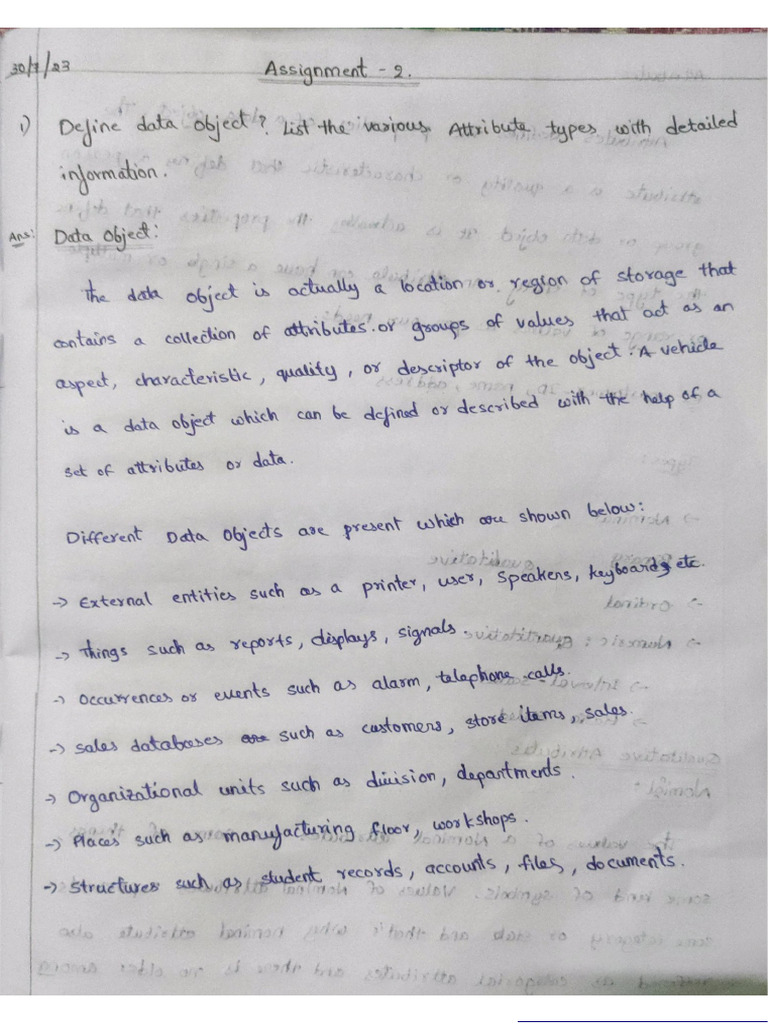 30/7/23
Assignment - 2.
1) Define data object? List the various Attribute types with detailed
information.
Ans: Data Object:
The data object is actually a location or region of storage that
contains a collection of attributes or groups of values that act as an
aspect, characteristic, quality, or descriptor of the object. A vehicle
is a data object which can be defined or described with the help of a
set of attributes or data.
Different Data objects are present which are shown below:
-> External entities such as a printer, user, speakers, keyboards etc.
-> Things such as reports, displays, signals.
-> Occurrences or events such as alarm, telephone calls.
-> Sales databases such as customers, store items, sales.
-> Organizational units such as division, departments.
-> Places such as manufacturing floor, workshops.
-> Structures such as student records, accounts, files, documents.